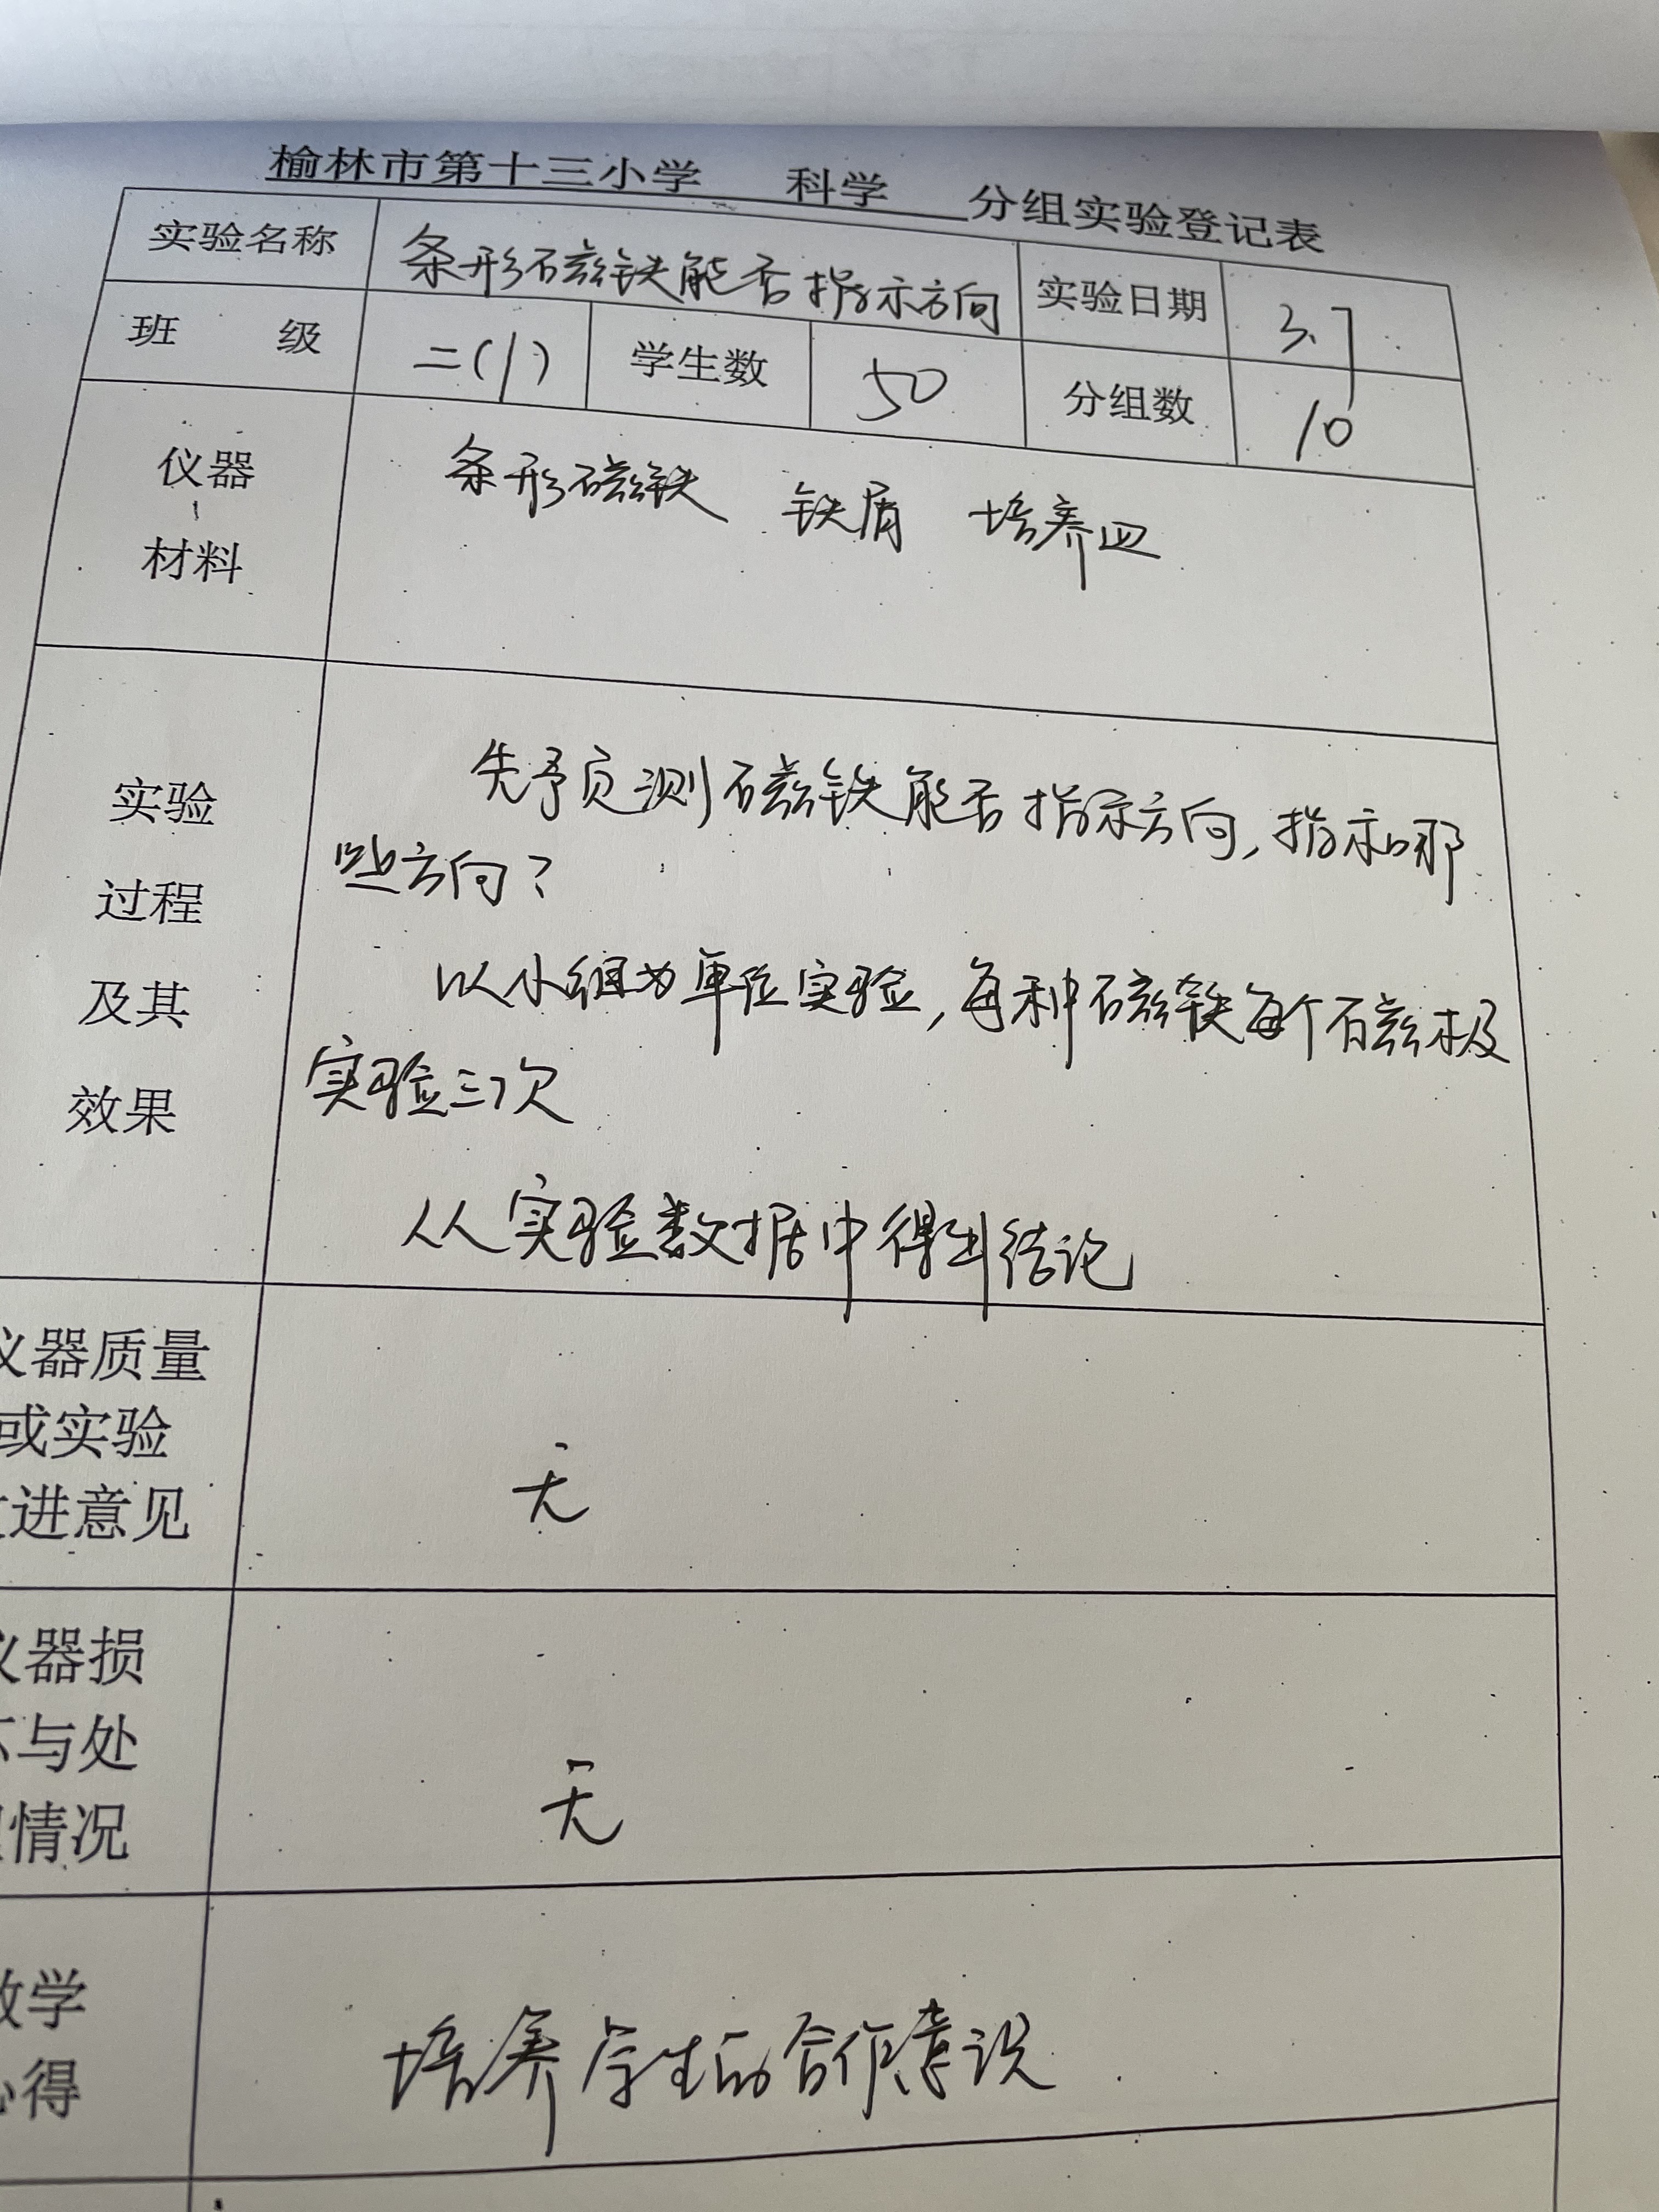 榆林市第十三小学 科学 分组实验登记表
实验名称 条形磁铁能否指示方向 实验日期 3.7
班 级 二(1) 学生数 50 分组数 10
仪器 材料 条形磁铁 铁屑 培养皿
实验 过程 及其 效果
先预测磁铁能否指示方向,指示哪
些方向?
以小组为单位实验,每种磁铁每个磁极
实验三次
从实验数据中得出结论
仪器质量
或实验
改进意见
无
仪器损
坏与处
理情况
无
教学
心得
培养学生的合作意识.